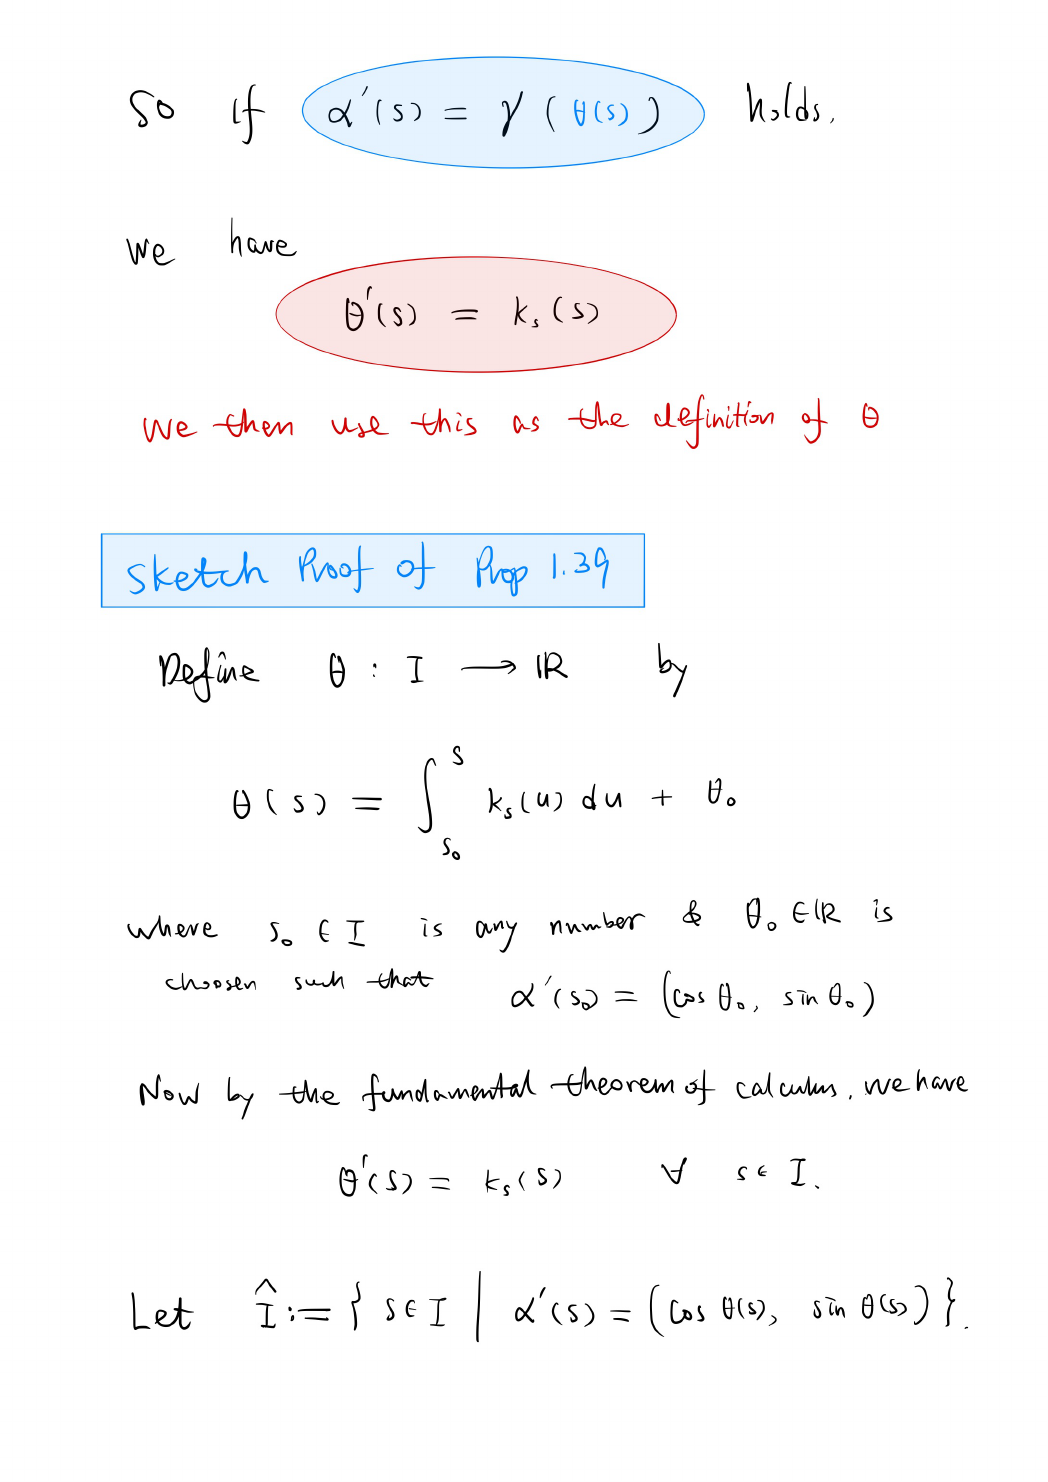 So if α'(s) = γ(θ(s)) holds,
we have
θ'(s) = kₛ(s)
we then use this as the definition of θ
Sketch Proof of Prop 1.39
Define θ : I ⟶ ℝ by
θ(s) = ∫_{s₀}^{s} kₛ(u) du + θ₀
where s₀ ∈ I is any number & θ₀ ∈ ℝ is
choosen such that α'(s₀) = (cos θ₀, sin θ₀)
Now by the fundamental theorem of calculus, we have
θ'(s) = kₛ(s) ∀ s ∈ I.
Let Î := { s ∈ I | α'(s) = (cos θ(s), sin θ(s)) }.